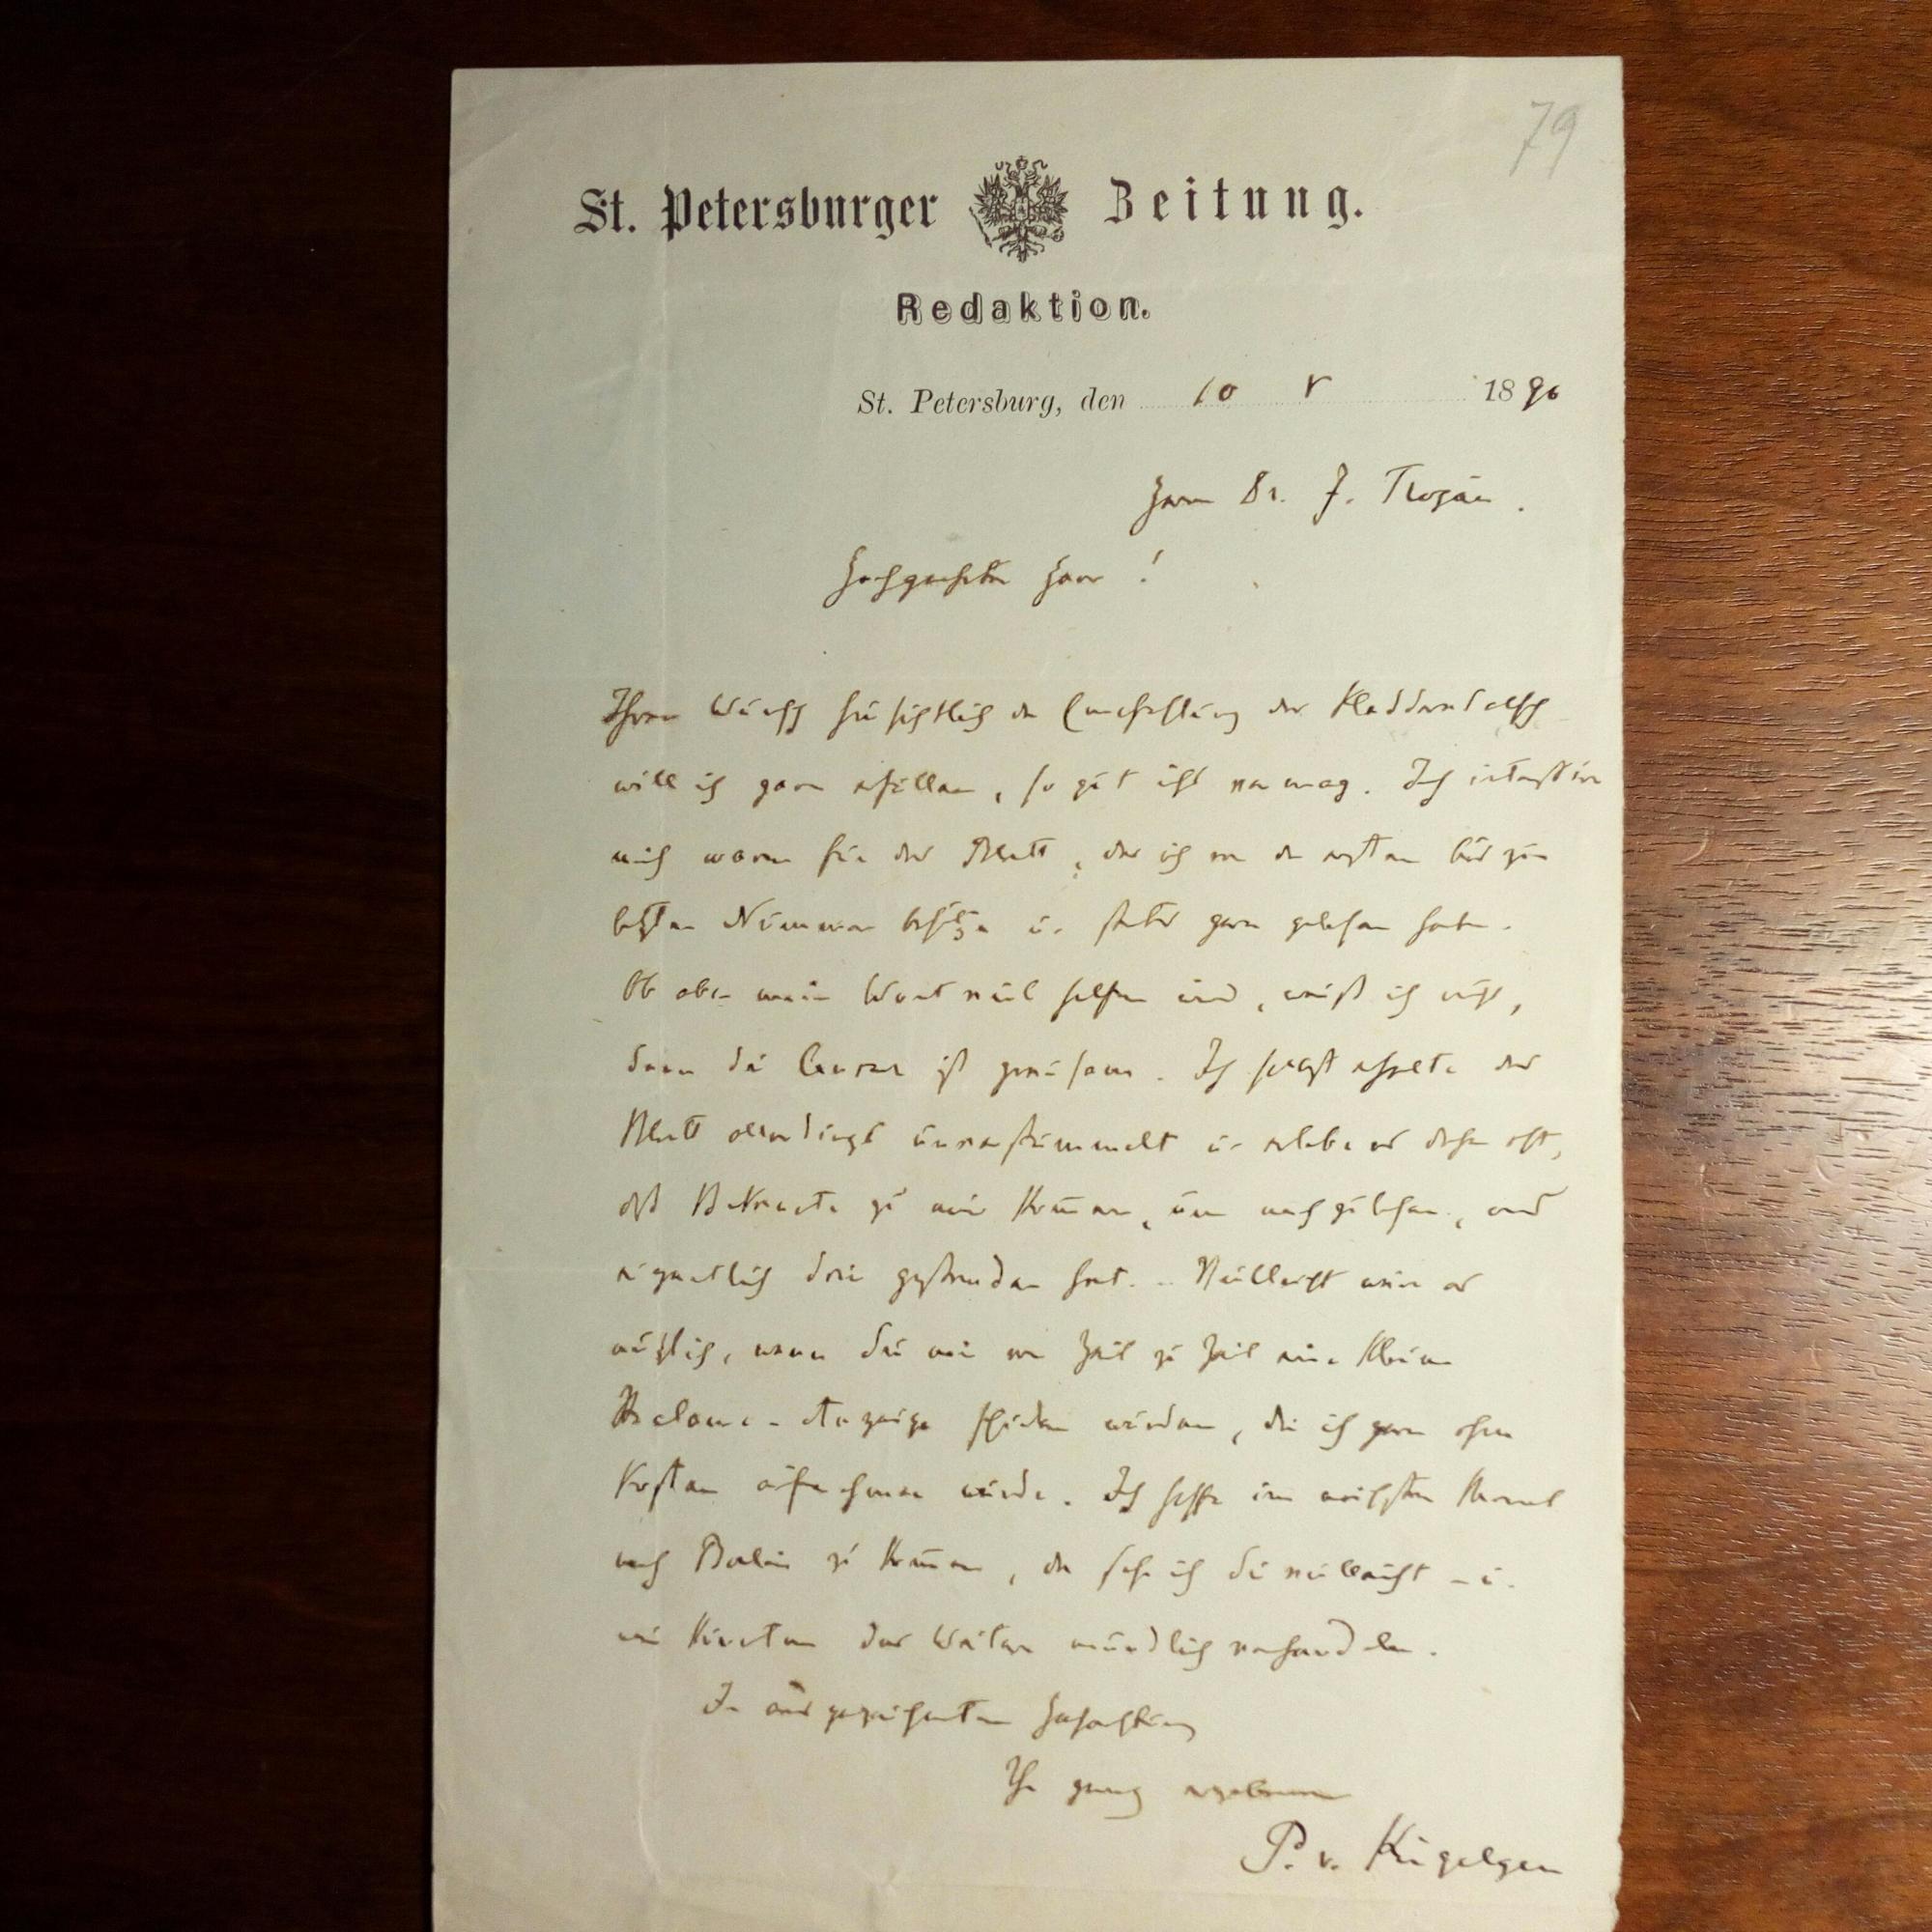 79
St. Petersburger Zeitung.
Redaktion.
St. Petersburg, den 10 V 1890
Herrn Dr. J. Trojan.
Hochgeehrter Herr!
Ihren Wunsch hinsichtlich der Empfehlung des Kladderadatsch
will ich gern erfüllen, so gut ichs vermag. Ich interessire
mich warm für das Blatt, das ich von der ersten bis zur
letzten Nummer besitze u. stets gern gelesen habe.
Ob aber mein Wort viel helfen wird, weiß ich nicht,
denn die Censur ist grausam. Ich selbst erhalte das
Blatt allerdings unverstümmelt u. erlebe es daher oft,
daß Bekannte zu mir kommen, um nachzulesen, was
eigentlich drin gestanden hat. – Vielleicht wäre es
nützlich, wenn Sie mir von Zeit zu Zeit eine kleine
Reclame-Anzeige schicken würden, die ich gern ohne
Kosten aufnehmen würde. Ich hoffe im nächsten Monat
nach Berlin zu kommen, da sehe ich Sie vielleicht – u.
wir könnten das Weitere mündlich verhandeln.
In ausgezeichneter Hochachtung
Ihr ganz ergebener
P. v. Kügelgen